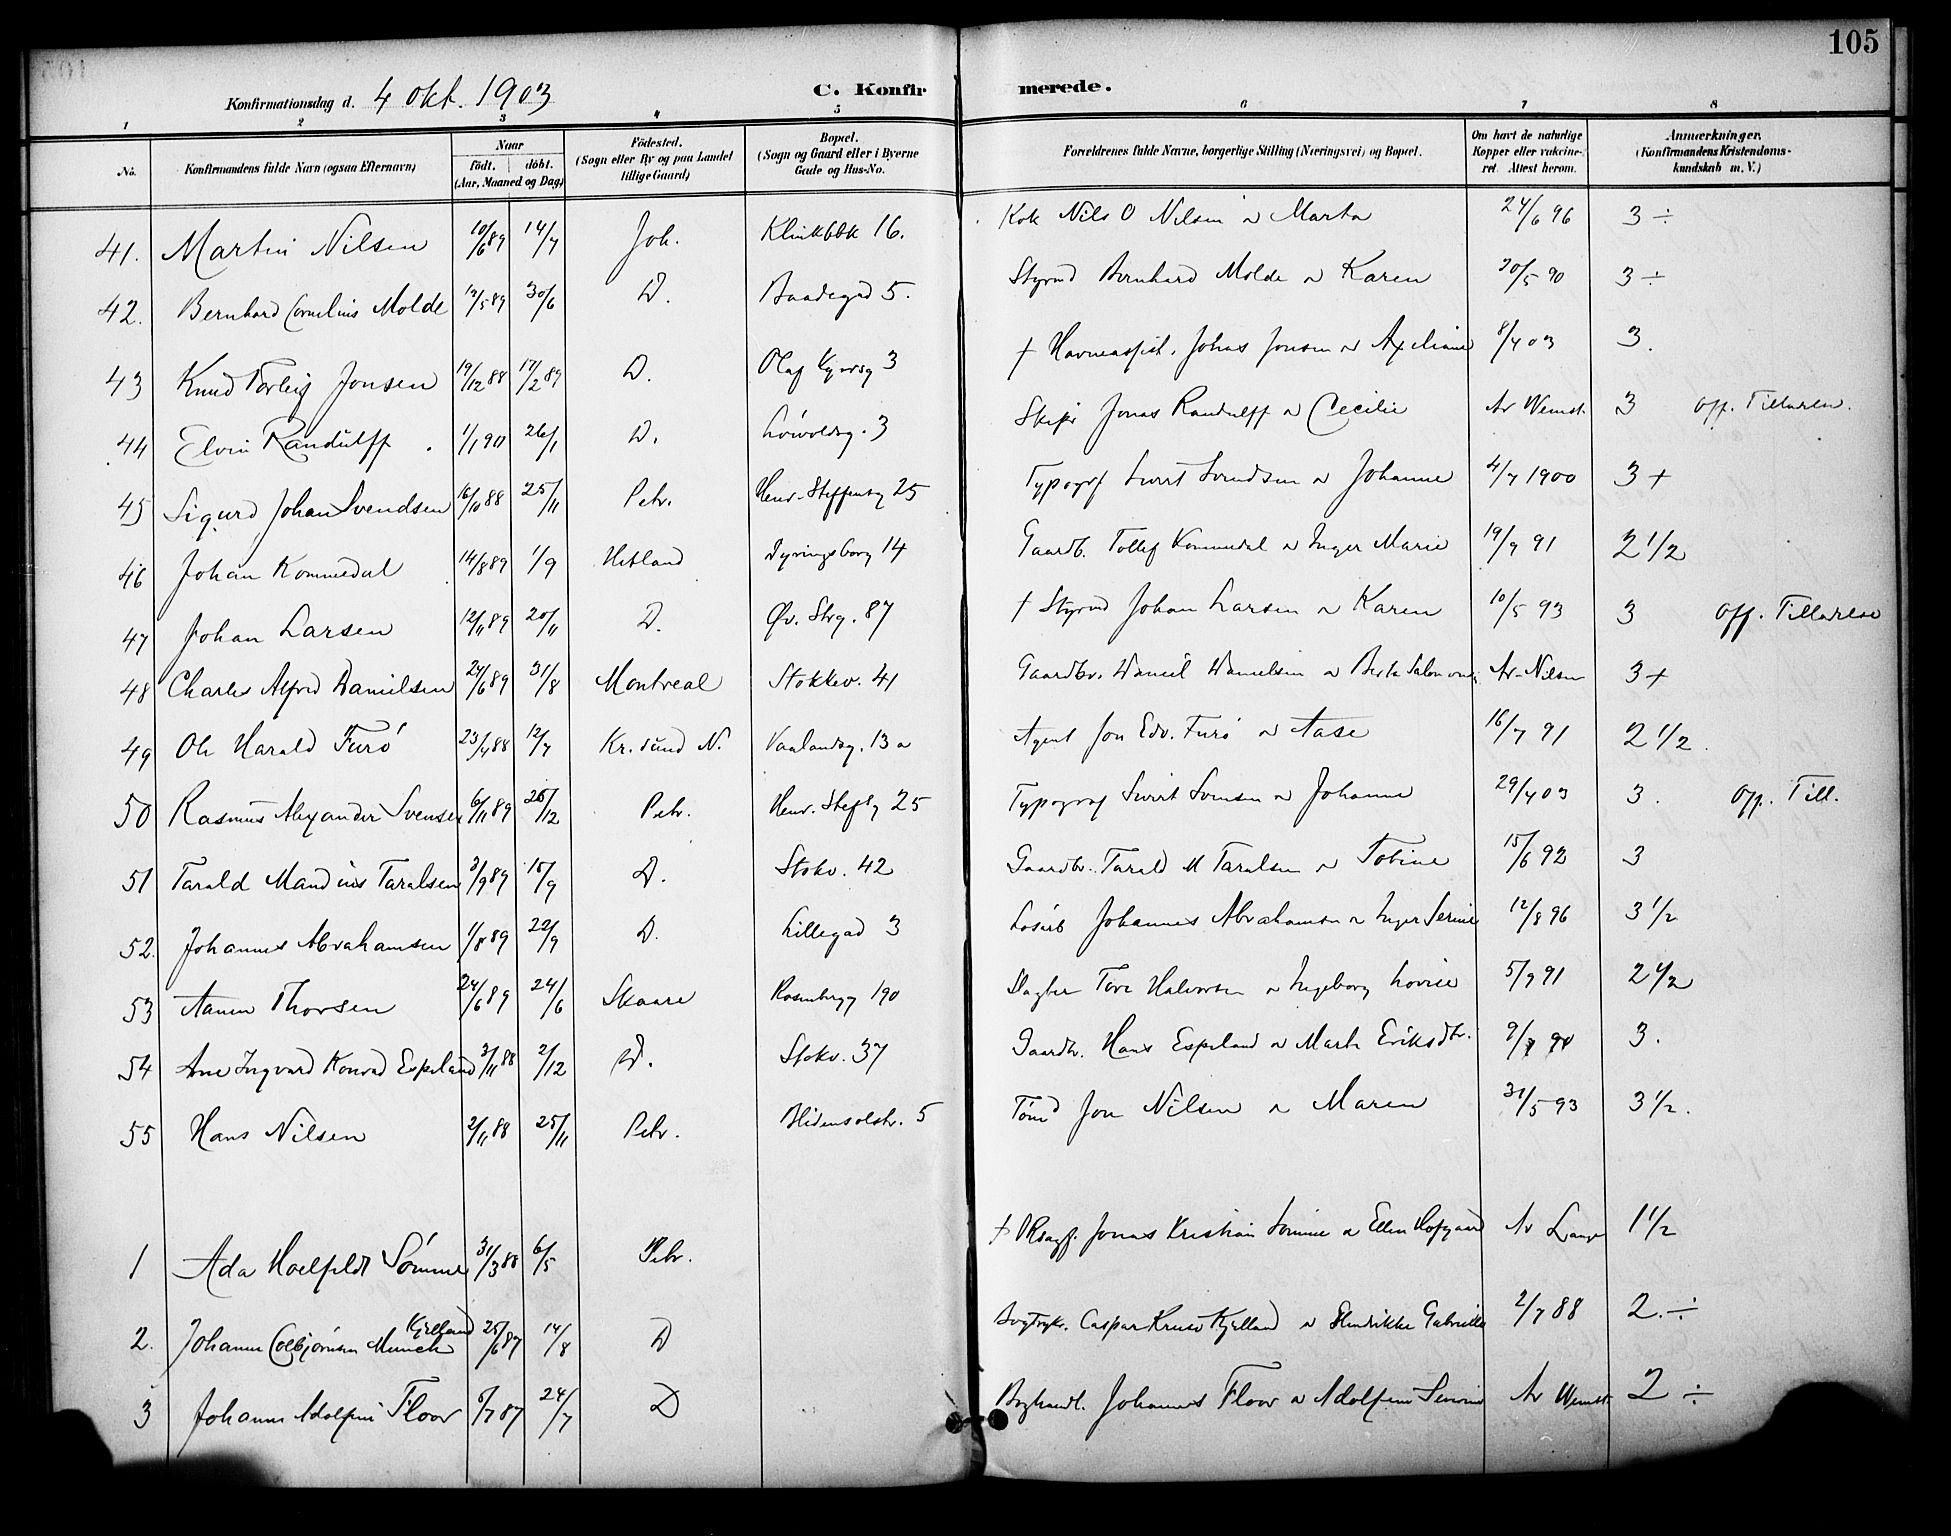 105
Konfirmationsdag d. 4 Okt. 1903
C. Konfirmerede.
1 2 3 4 5 6 7 8
No. Konfirmandens fulde Navn (ogsaa Efternavn) Naar födt. döbt. (Aar, Maaned og Dag) Födested. (Sogn eller By og paa Landet tillige Gaard) Bopæl. (Sogn og Gaard eller i Byerne Gade og Hus-No. Forældrenes fulde Navne, borgerlige Stilling (Næringsvei) og Bopæl. Om havt de naturlige Kopper eller vaccineret. Attest herom. Anmærkninger. (Konfirmandens Kristendomskundskab m. V.)
41. Martin Nilsen 10/6 89 14/7 Joh. Klinkbbk 16. Kok Nils O Nilsen & Marta 24/6 96 3 ÷
42. Bernhard Cornelius Molde 30/6 D. Baadegd 5. Styrmd Bernhard Molde & Karen 30/5 90 3 ÷
43 Knud Torleif Jonsen 19/12 88 17/2 89 D. Olaf Kyrresg 3 † Havneassist. Johas Jonsen & Axeliane 8/4 03 3.
44 Elvin Randulff. 1/1 90 26/1 D. Lövoldsg. 3 Skipr Jonas Randulff & Cecilie Ar Wemst. 3 Off. Tilladelse.
45 Sigurd Johan Svendsen 16/10 88 25/11 Petr. Henr. Steffensg 25 Typogrf Sivert Svendsen & Johanne 4/7 1900 3 +
46 Johan Kommedal 14/8 89 1/9 Hetland Dyringsborg 14 Gaardb. Tollef Kommedal & Inger Marie 19/9 91 2 1/2
47 Johan Larsen 12/11 89 20/11 D. Øv. Strg. 87 † Styrmd Johan Larsen & Karen 10/5 93 3 Off. Tilladelse
48 Charles Alfred Danielsen 24/6 89 31/8 Montreal Stokkev. 41 Gaardbr. Daniel Danielsen & Berta Ar Nilsen 3 +
49 Ole Harald Furö 23/4 88 12/7 Kr. sund N. Vaalandsg. 13 a Agent Jon Edv. Furö & Aase 16/7 91 2 1/2.
50 Rasmus Alexander Svensen 6/11 89 26/12 Petr. Henr. Stefsg 25 Typograf Sivert Svensen & Johanne 29/4 03 3. Off. Till.
51 Tarald Mandius Taralsen 3/9 89 15/9 D. Stokv. 42 Gaardbr. Tarald M Taralsen & Tobine 15/6 92 3
52. Johannes Abrahamsen 1/8 89 22/9 D. Lillegad 3 Løsarb Johannes Abrahamsen & Inger Serine 12/8 96 3 1/2
53 Aanen Thorsen 24/6 89 24/6 Skaare Rosenbergg 190 Tore Halvorsen & Ingeborg Lovise 5/9 91 2 1/2
54 Arne Ingvard Konrad Espeland 3/11 88 2/12 D. Stokv. 37 Gaardbr. Hans Espeland & Marta Eriksdtr. 3.
55 Hans Nilsen 2/11 88 25/11 Petr. 5 Tömd Jon Nilsen & Maren 31/5 93 3 1/2.
1 Ada Hoelfeldt Sömme 31/3 88 6/5 Petr. † Jonas Kristian Sömme & Ellen Hofgaard Ar Lange 1 1/2
2. Johanne Colbjørnsen Munch Kjelland 25/6 87 14/8 D Caspar Kruse Kjelland & Hendrikke Gabrielle 2/7 88 2. ÷
3 Johanne Adolfine Floor 6/7 87 24/7 D Boghandl. Johannes Floor & Adolfine Severine Ar Wemst. 2 ÷